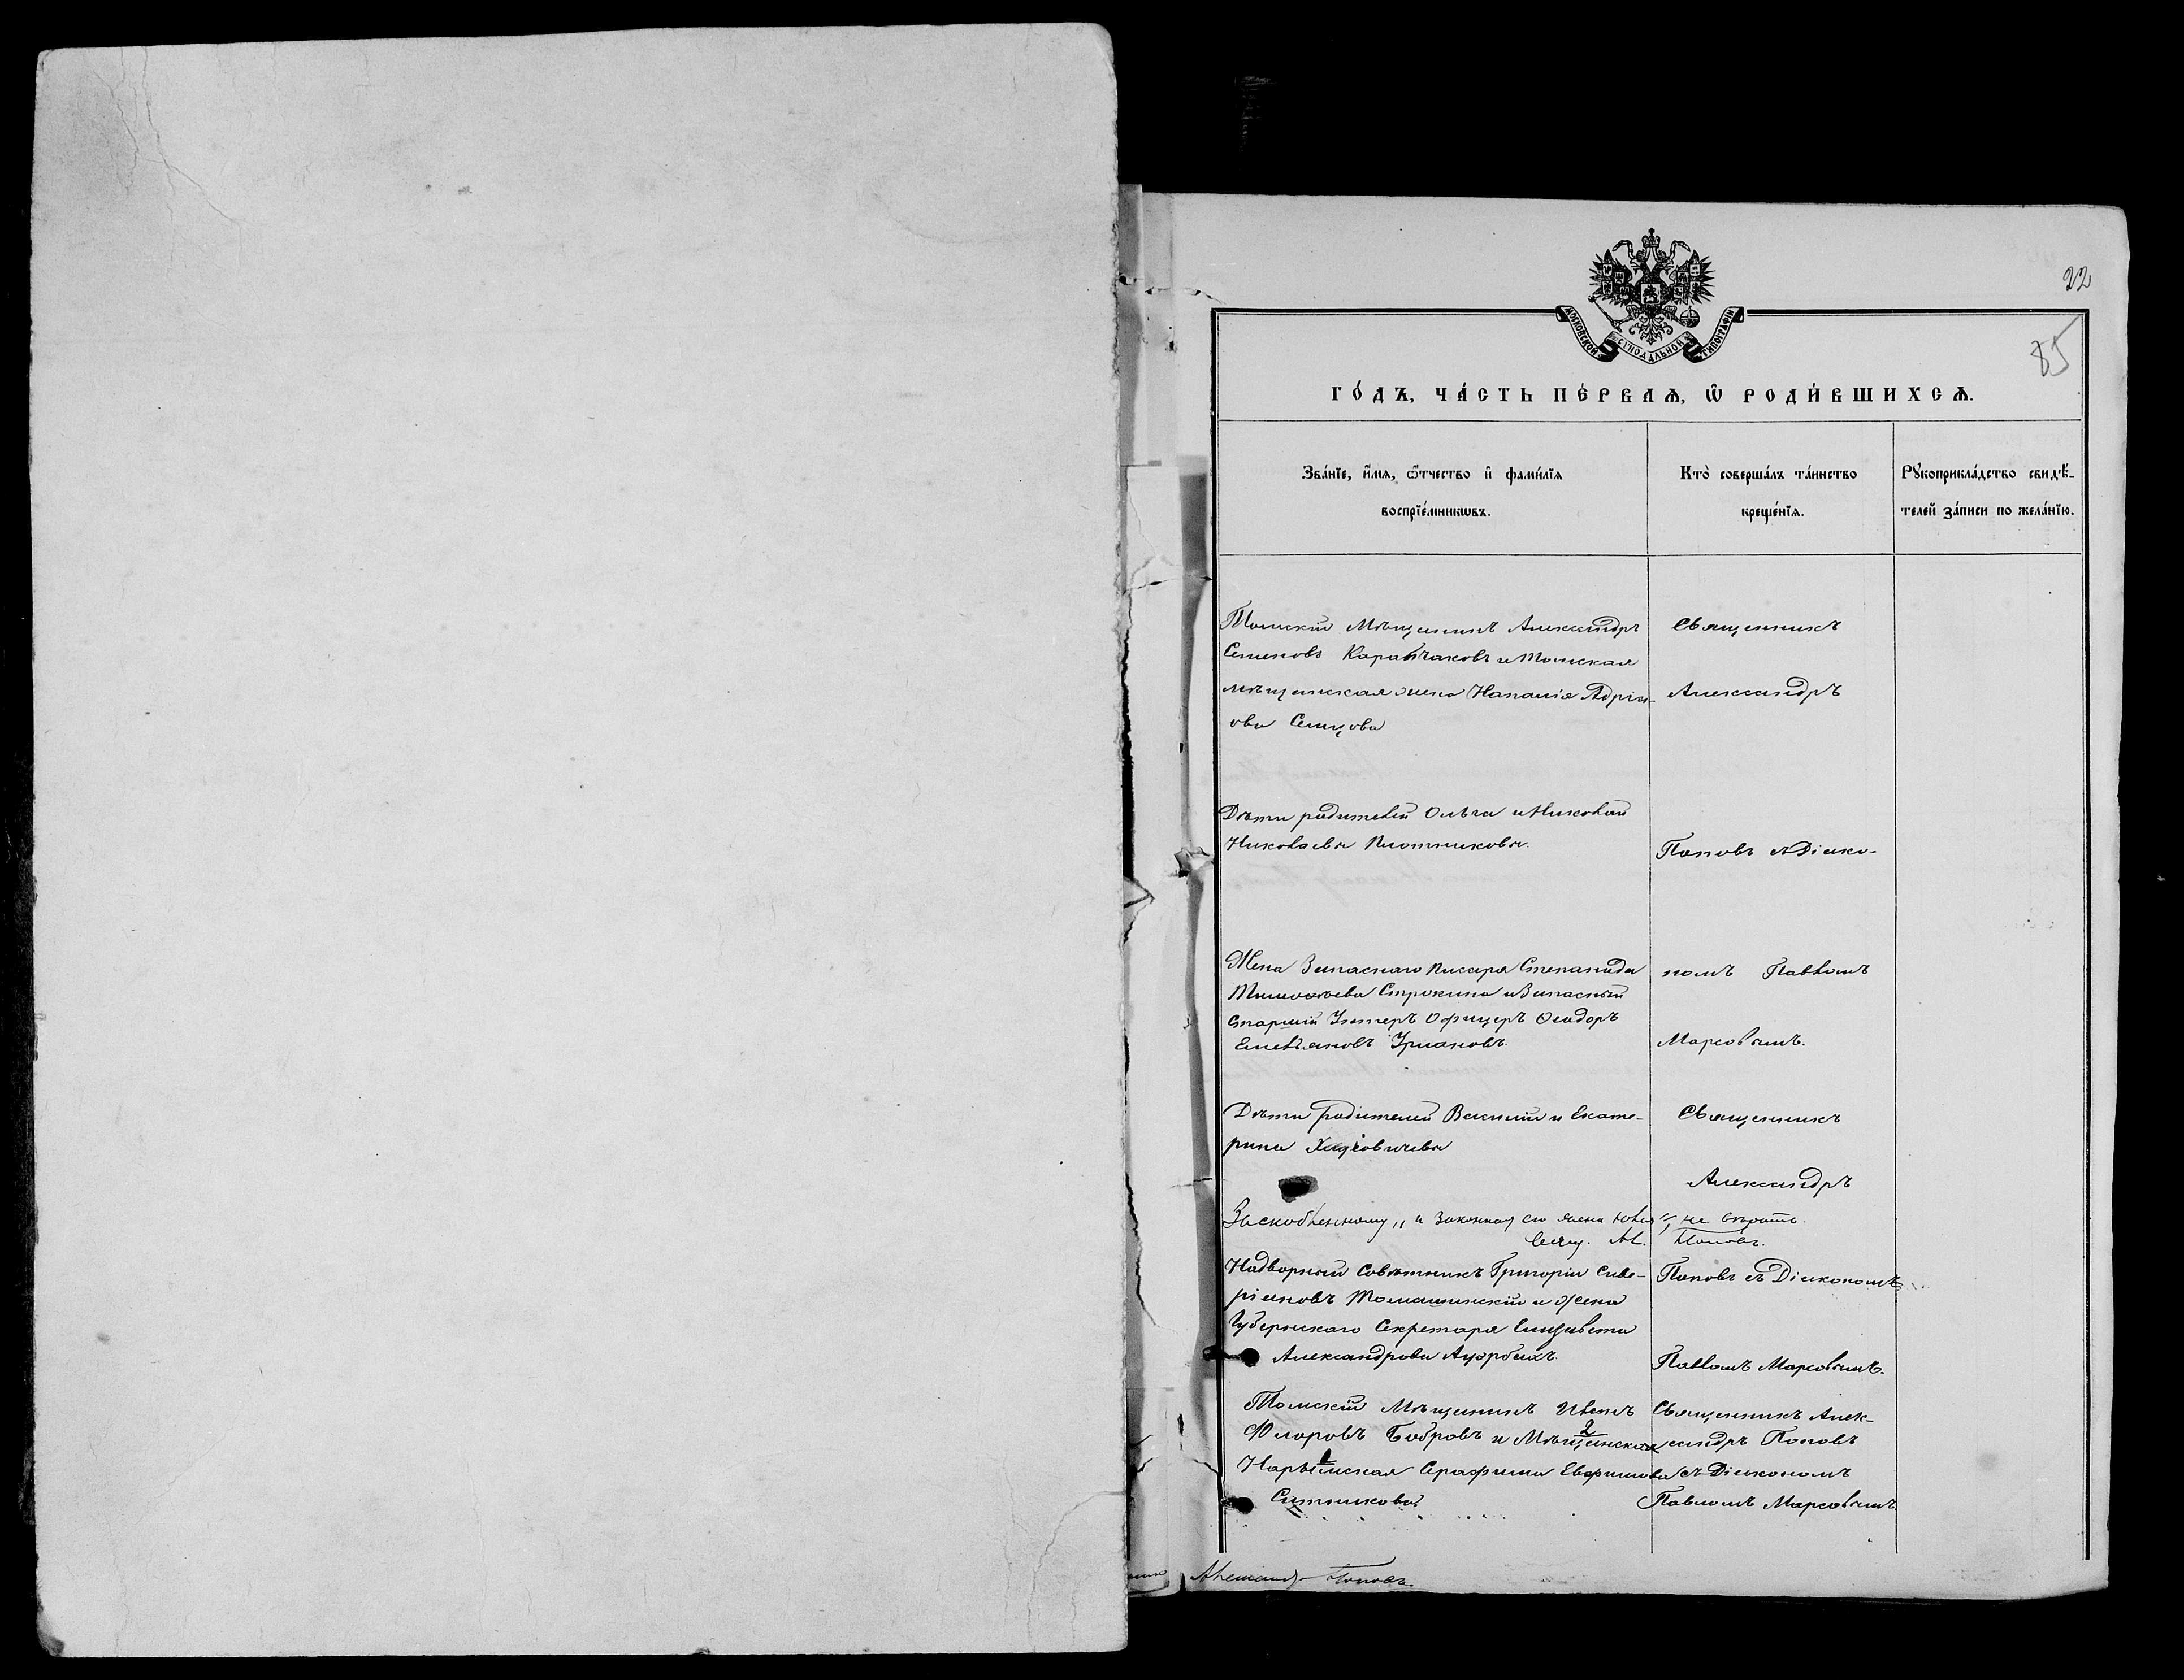 22
85
МОСКОВСКОЙ СѴНОДАЛЬНОЙ ТИПОГРАФІИ
ГО́ДЪ, ЧА́СТЬ ПЕ́РВАѦ, Ѽ РОДИ́ВШИХСѦ.
Зва́нїе, и҆́мѧ, ѻ҆́тчество и҆ фами́лїѧ
воспрїе́мникѡвъ.
Кто̀ соверша́лъ та́инство
креще́нїѧ.
Рꙋкоприкла́дство свидѣ́-
телей за́писи по жела́нїю.
Томскій Мѣщанинъ Александръ
Семеновъ Карабчаковъ и Томская
мѣщанская жена Наталія Адріа-
ова Семцова
Священникъ
Александръ
Дѣти родителей Ольга и Николай
Николаевы Плотниковы.
Поповъ съ Діако-
Жена Запаснаго писаря Степанида
Тимоѳеева Строкина и Запасный
старшій Унтеръ Офицеръ Ѳеодоръ
Емельяновъ Урмановъ.
номъ Павломъ
Марсовымъ.
Дѣти родителей Василій и Екате-
рина
Священникъ
Александръ
Заскобленному „и законная его жена Юлія“ не вѣрить.
Свящ. Ал. Поповъ.
Надворный Совѣтникъ Григорій Севе-
ріановъ Томашинскій и жена
Губернскаго Секретаря Елизавета
Александрова Ауэрбахъ.
Поповъ съ Діакономъ
Павломъ Марсовымъ.
Томскій Мѣщанинъ Иванъ
Флоровъ Бобровъ и Мѣщанская
2
1
Нарымская Серафима Евфимова
Ситникова
Священникъ Алек-
сандръ Поповъ
съ Діакономъ
Павломъ Марсовымъ
Александръ Поповъ.